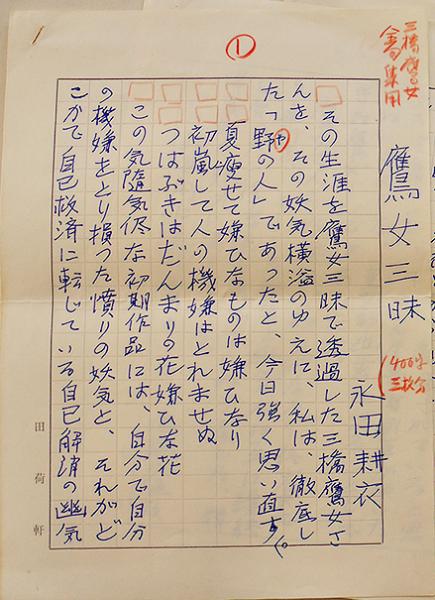 ①
三橋鷹女
全集用
鷹女三昧
(400字
三枚分)
永田耕衣
その生涯を鷹女三昧で透過した三橋鷹女さ
んを、その妖気横溢のゆえに、私は、徹底し
た「野の人」であったと、今日強く思い直す。
や
夏痩せて嫌ひなものは嫌ひなり
初嵐して人の機嫌はとれませぬ
つはぶきはだんまりの花嫌ひな花
この気随気侭な初期作品には、自分で自分
の機嫌をとり損った憤りの妖気と、それがど
こかで自己救済に転じている自己解消の幽気
田荷軒